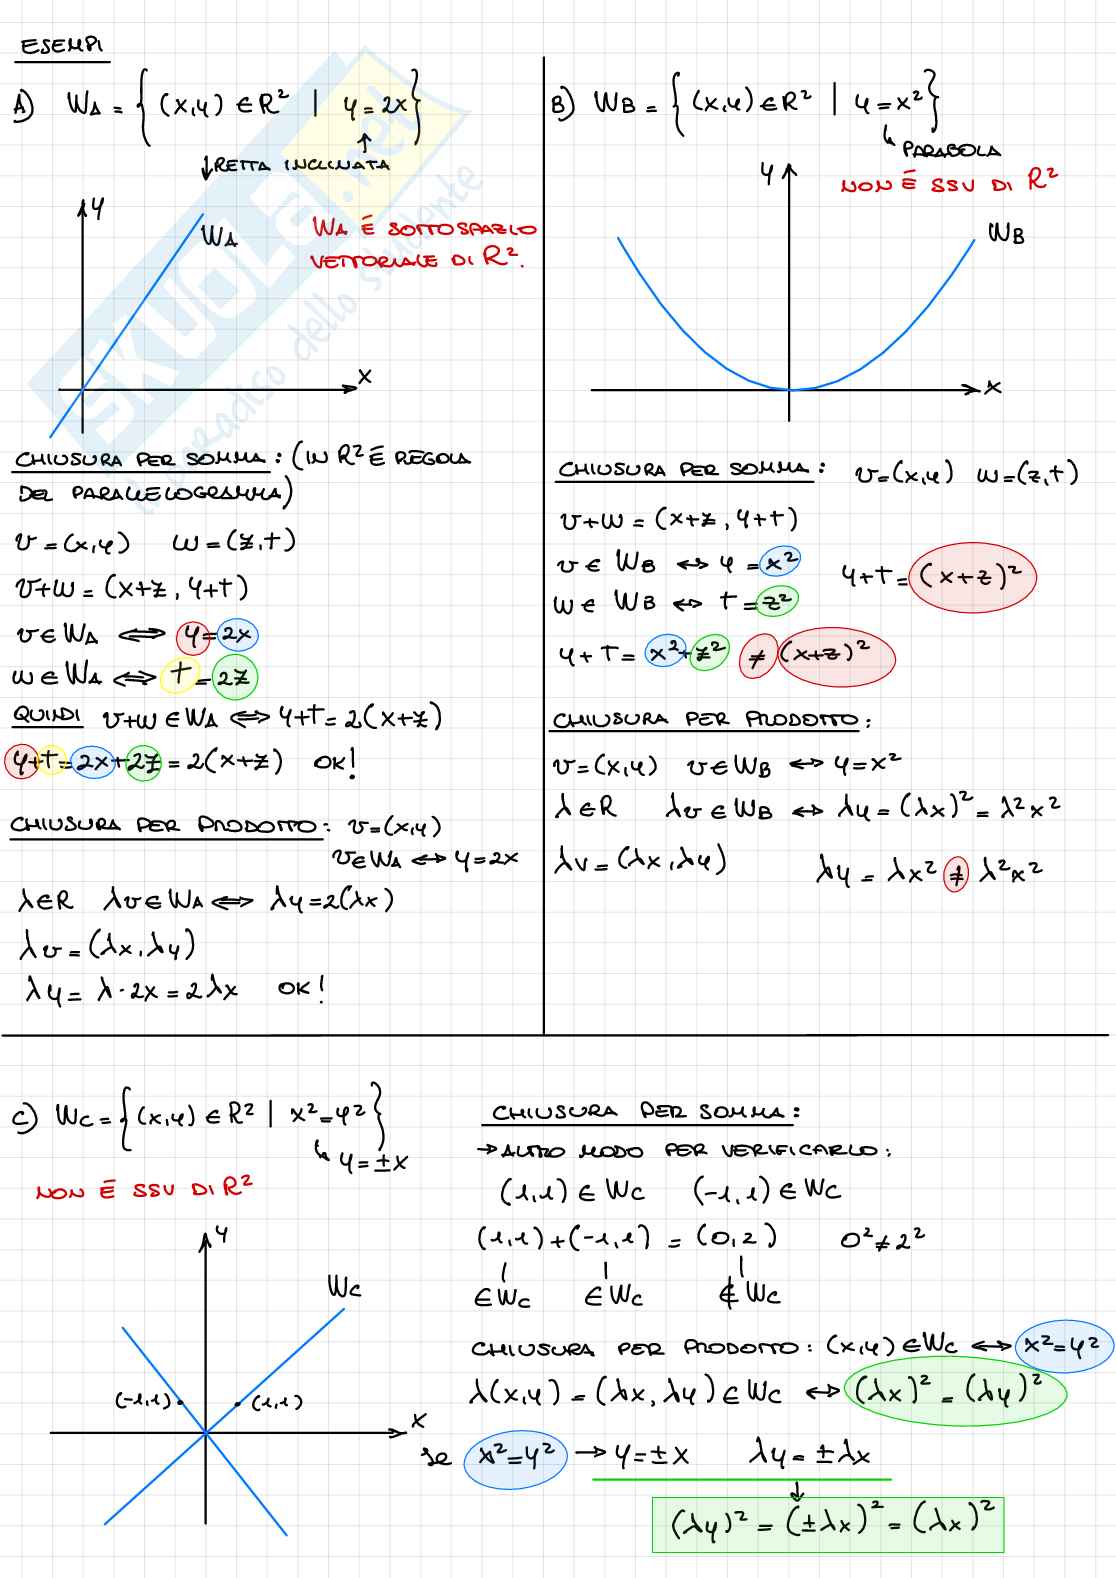 ESEMPI
A) WA = { (x,y) ∈ R² | y = 2x }
↓ RETTA INCLINATA ↑
y
WA
WA É SOTTOSPAZIO
VETTORIALE DI R².
x
CHIUSURA PER SOMMA: (IN R² É REGOLA
DEL PARALLELOGRAMMA)
v = (x,y) w = (z,t)
v+w = (x+z, y+t)
v ∈ WA ⟺ y = 2x
w ∈ WA ⟺ t = 2z
QUINDI v+w ∈ WA ⟺ y+t = 2(x+z)
y+t = 2x+2z = 2(x+z) OK!
CHIUSURA PER PRODOTTO: v = (x,y)
v ∈ WA ⟺ y = 2x
λ ∈ R λv ∈ WA ⟺ λy = 2(λx)
λv = (λx, λy)
λy = λ · 2x = 2λx OK!
B) WB = { (x,y) ∈ R² | y = x² }
↳ PARABOLA
NON É SSV DI R²
y
WB
x
CHIUSURA PER SOMMA: v = (x,y) w = (z,t)
v+w = (x+z, y+t)
v ∈ WB ↔ y = x² y+t = (x+z)²
w ∈ WB ↔ t = z²
y+t = x²+z² ≠ (x+z)²
CHIUSURA PER PRODOTTO:
v = (x,y) v ∈ WB ↔ y = x²
λ ∈ R λv ∈ WB ↔ λy = (λx)² = λ²x²
λv = (λx, λy) λy = λx² ≠ λ²x²
C) WC = { (x,y) ∈ R² | x² = y² }
↳ y = ±x
NON É SSV DI R²
y
WC
(-1,1) (1,1)
x
CHIUSURA PER SOMMA:
→ ALTRO MODO PER VERIFICARLO:
(1,1) ∈ WC (-1,1) ∈ WC
(1,1) + (-1,1) = (0,2) 0² ≠ 2²
∈ WC ∈ WC ∉ WC
CHIUSURA PER PRODOTTO: (x,y) ∈ WC ⟺ x² = y²
λ(x,y) = (λx, λy) ∈ WC ↔ (λx)² = (λy)²
se x² = y² → y = ±x λy = ±λx
↓
(λy)² = (±λx)² = (λx)²
SKUOLA.net
il paradiso dello studente